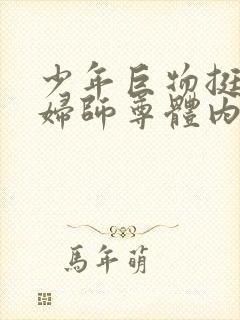 少年巨物挺
婦師尊體內
馬年萌